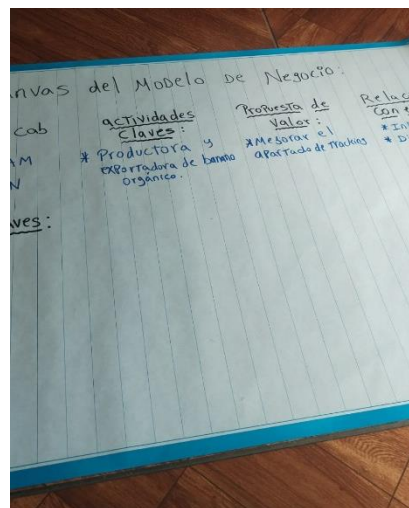 nvas del Modelo De Negocio:
cab
AM
N
ves:
actividades
Claves:
* Productora y
Exportadora de banano
orgánico.
Propuesta de
Valor:
* Mejorar el
apartado de Tracking
Relac
Con
* In
* D